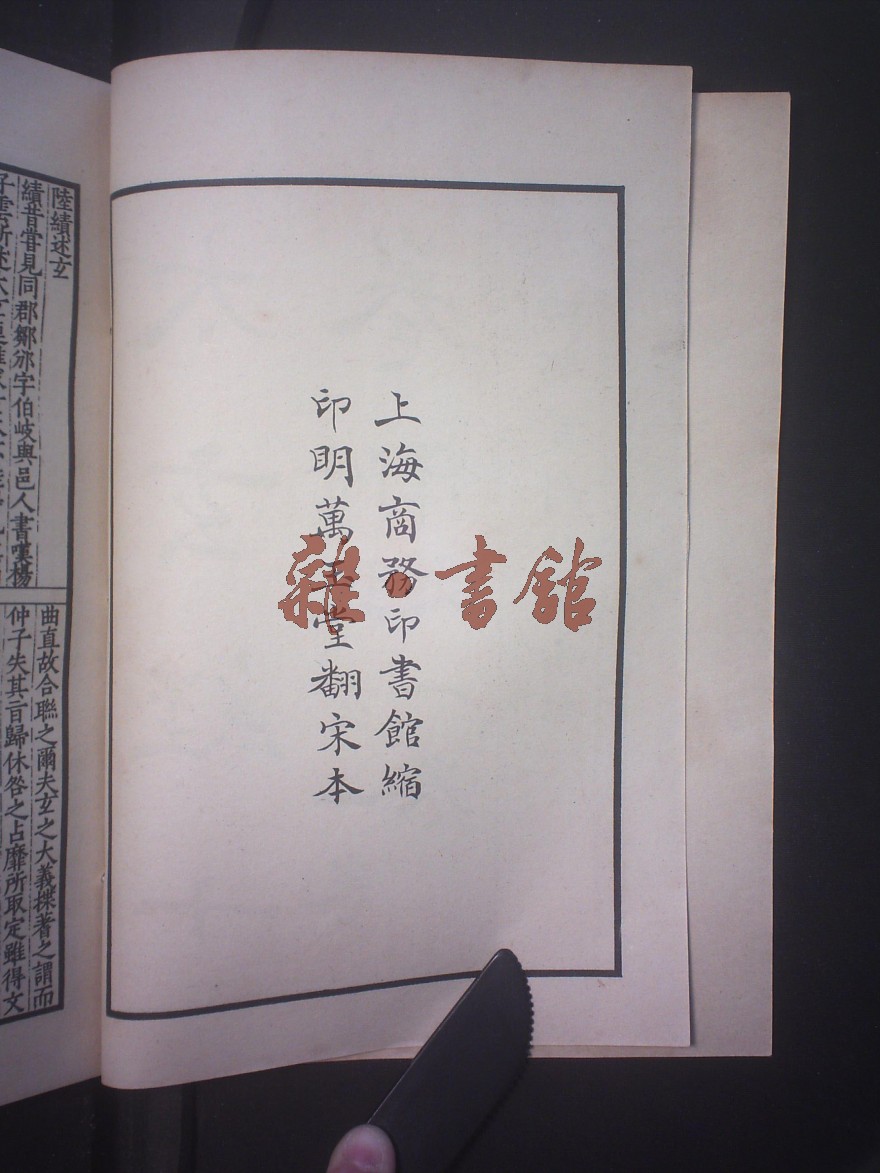 上海商務印書館縮
印明萬玉堂翻宋本
雜·書館
陸績述玄
績昔嘗見同郡鄒邠字伯岐與邑人書嘆楊
曲直故合聯之爾夫玄之大義揲蓍之謂而
仲子失其旨歸休咎之占靡所取定雖得文